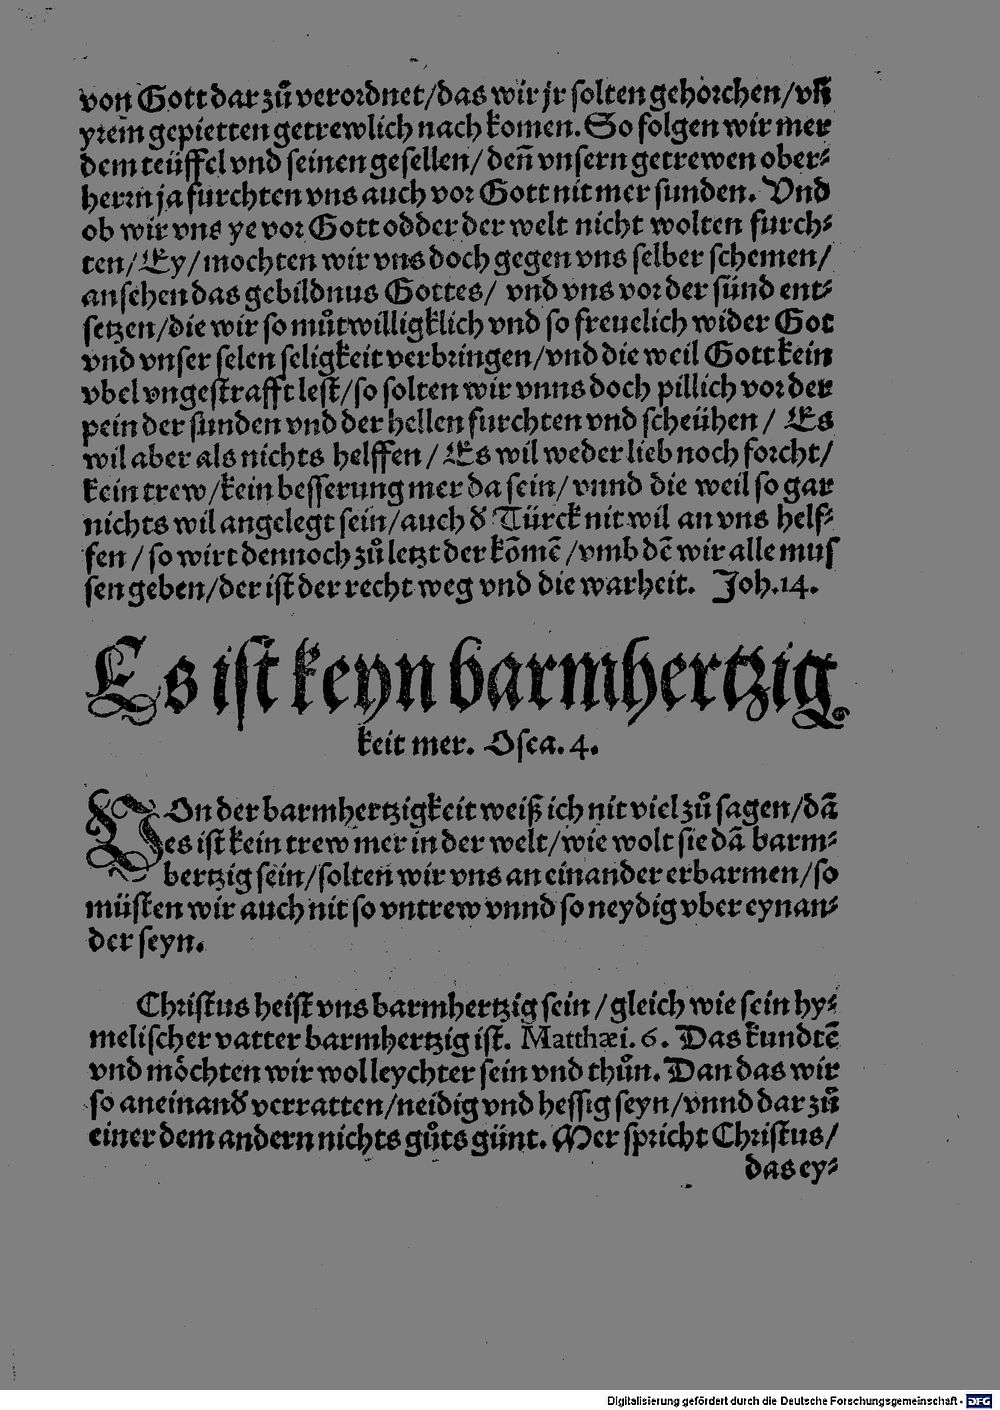 von Gott dar zů verordnet/das wir jr solten gehorchen/vñ
yrem gepietten getrewlich nach komen. So folgen wir mer
dem teüffel vnd seinen gesellen/ deñ vnsern getrewen ober⸗
herrn ja furchten vns auch vor Gott nit mer sunden. Vnd
ob wir vns ye vor Gott odder der welt nicht wolten furch⸗
ten/Ey/mochten wir vns doch gegen vns selber schemen/
ansehen das gebildnus Gottes/ vnd vns vor der sünd ent⸗
setzen/die wir so můtwilligklich vnd so freuelich wider Got
vnd vnser selen seligkeit verbringen/vnd die weil Gott kein
vbel vngestrafft lest/so solten wir vnns doch pillich vor der
pein der sunden vnd der hellen furchten vnd scheühen/ Es
wil aber als nichts helffen/ Es wil weder lieb noch forcht/
kein trew/kein besserung mer da sein/ vnnd die weil so gar
nichts wil angelegt sein/auch d Türck nit wil an vns helf⸗
fen/ so wirt dennoch zů letzt der kōmē/vmb dē wir alle mus
sen geben/der ist der recht weg vnd die warheit. Joh.14.
Es ist keyn barmhertzig
keit mer. Osea. 4.
VOn der barmhertzigkeit weiß ich nit viel zů sagen/dā
es ist kein trew mer in der welt/wie wolt sie dā barm⸗
hertzig sein/solten wir vns an einander erbarmen/so
müsten wir auch nit so vntrew vnnd so neydig vber eynan⸗
der seyn.
Christus heist vns barmhertzig sein/gleich wie sein hy⸗
melischer vatter barmhertzig ist. Matthæi. 6. Das kundtē
vnd möchten wir wol leychter sein vnd thůn. Dan das wir
so aneinand verratten/neidig vnd hessig seyn/vnnd dar zů
einer dem andern nichts gůts günt. Mer spricht Christus/
das ey⸗
Digitalisierung gefördert durch die Deutsche Forschungsgemeinschaft - DFG